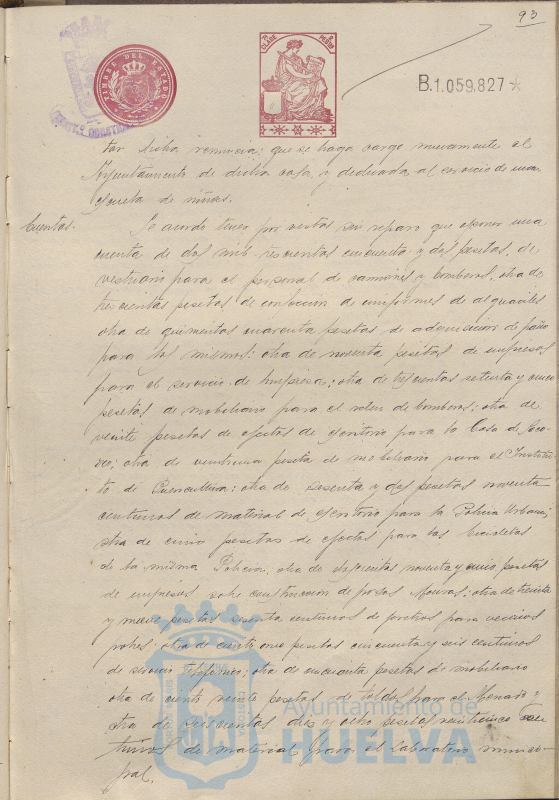 93
TIMBRE DEL ESTADO
CLASE
PESETAS
B.1.059.827
dicha renuncia; que se haga cargo nuevamente el
Ayuntamiento de dicha casa y dedicada al servicio de una
escuela de niñas.
Cuentas.
Se acordó tener por vistas sin reparo que oponer una
cuenta de dos mil trescientas cincuenta y dos pesetas, de
vestuario para el personal de camiones y bomberos, otra de
trescientas pesetas de confección de uniformes de alguaciles
otra de quinientas cuarenta pesetas de adquisición de paño
para los mismos: otra de noventa pesetas de impresos
para el servicio de limpieza; otra de trescientas setenta y cinco
pesetas de mobiliario para el reten de bomberos; otra de
veinte pesetas de efectos de escritorio para la Casa de Soco-
rro; otra de veintiuna peseta de mobiliario para el Institu-
to de Puericultura; otra de sesenta y dos pesetas noventa
centimos de material de escritorio para la Policia Urbana;
otra de cinco pesetas de efectos para las bicicletas
de la misma Policia; otra de noventa y cinco pesetas
de impresos sobre construcción de pozos Mouras; otra de treinta
y nueve pesetas sesenta centimos de para vecinos
pobres; otra de ciento once pesetas cincuenta y seis centimos
de servicio telefonico; otra de cincuenta pesetas de mobiliario
otra de ciento veinte pesetas de toldos para el y
otra de diez y ocho pesetas veinticinco cen-
timos de material para el Laboratorio munici-
pal.
Ayuntamiento de
HUELVA